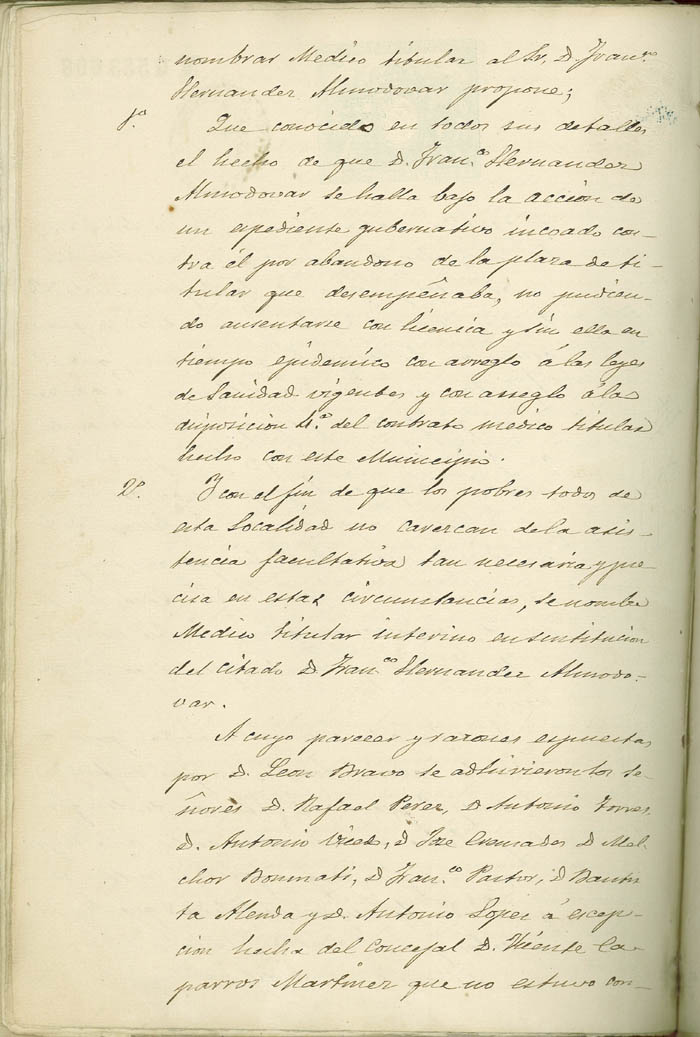 nombrar Medico titular al Sr. D. Franco.
Hernandez Almodovar propone;
1o Que conocido en todos sus detalles
el hecho de que D. Franco. Hernandez
Almodovar se halla bajo la acción de
un espediente gubernativo incoado con-
tra él por abandono de la plaza de ti-
tular que desempeñaba, no pudien-
do ausentarse con licencia y sin ella en
tiempo epidemico con arreglo á las leyes
de Sanidad vigentes y con arreglo á la
disposicion 4.a del contrato medico titular
hecho con este Municipio.
2o. Y con el fin de que los pobres todos de
esta localidad no carezcan de la asis-
tencia facultativa tan necesaria y pre-
cisa en estas circunstancias, se nombre
Medico titular interino en sustitucion
del citado D. Franco. Hernandez Almodo-
var.
A cuyo parecer y razones espuestas
por D. Leon Bravo se adhirieron los se-
ñores D. Rafael Perez, D Antonio Torres,
D. Antonio D Jose Cremades D Mel-
chor Bonmati, D Franco. Pastor, D Bautis
ta Alenda y D. Antonio Lopez á escep-
cion hecha del Concejal D. Vicente Ca-
parros Martinez que no estuvo con-